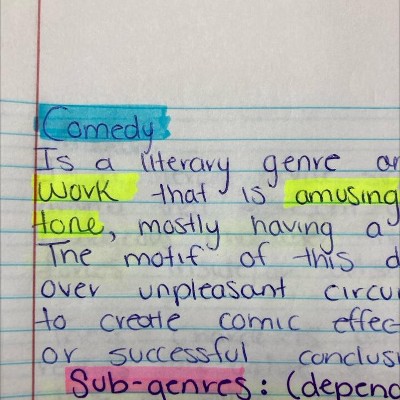 Comedy
Is a literary genre
work that is amusing
tone, mostly having a
The motif of this
over unpleasant
to create comic
or successful
Sub-genres: (depend